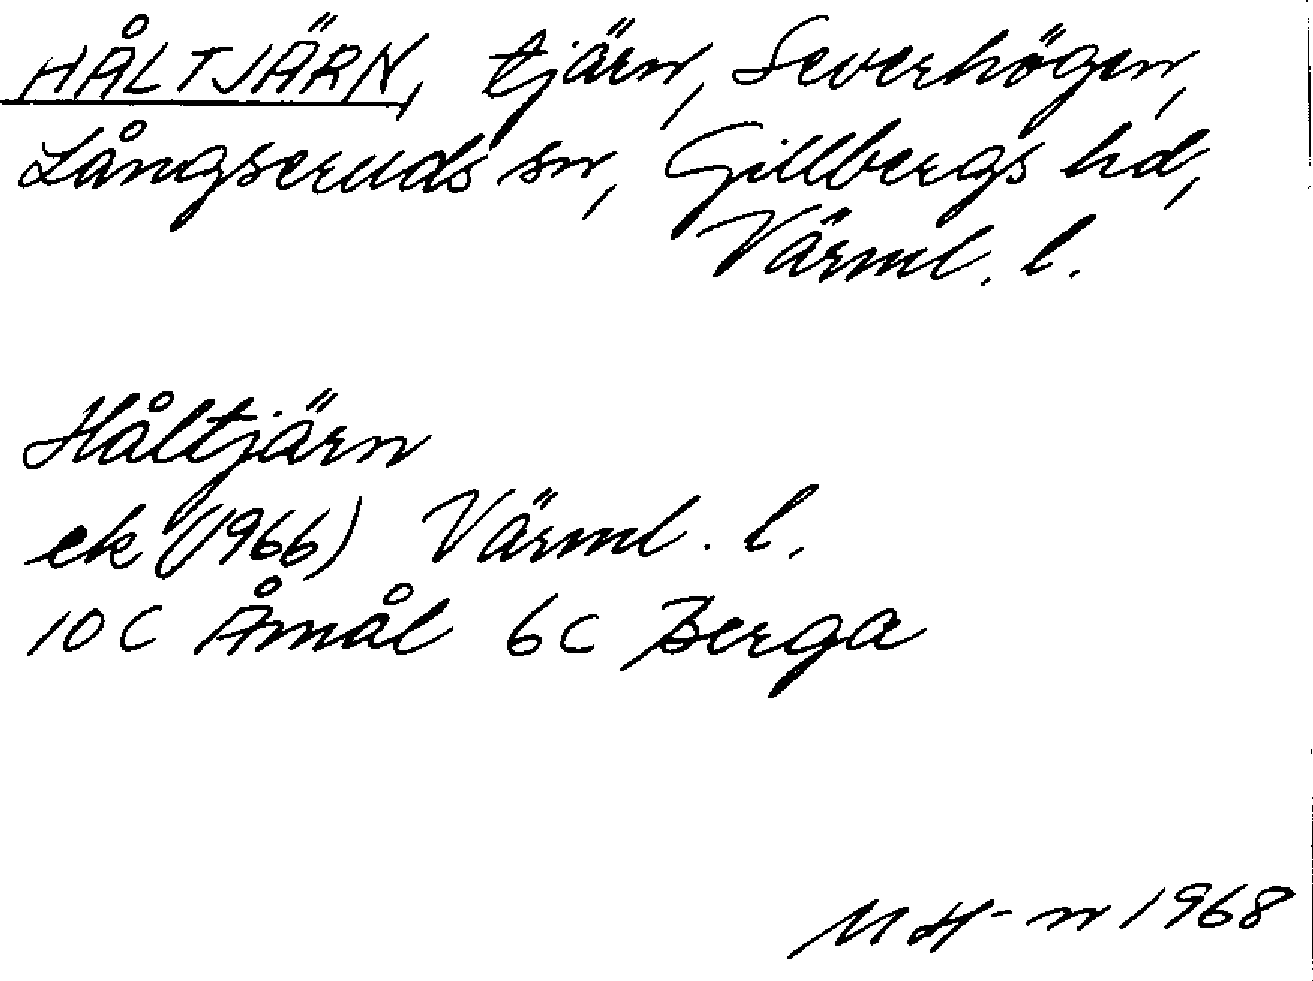 HÅLTJÄRN, tjärn, Severhögen,
Långseruds sn, Gillbergs hd,
Värml. l.
Håltjärn
ek (1966) Värml. l.
10C Åmål 6c Berga
M H-n 1968